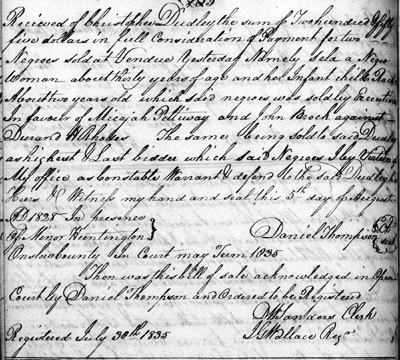 Recieved of Christopher Dudley the sum of Two hundred & fifty
five dollars in full Consideration of Payment for two
Negroes sold at Vendue Yesterday Namely Sela a Negro
Woman about thirty years of age and her Infant child
About two years old which said negroes was sold by Execution
In favour of Micajah Pettway and Jno Brock against
Durand H Rhodes The same being sold to said Dudley
as highest & Last bidder which said Negroes I by Virtue of
My office as Constable Warrant & defend to the said Dudley his
Heirs & Witness my hand and seal this 5th day of August
AD 1828 In presence
of Minor Huntington } Daniel Thompson seal
Onslow County In Court may Term 1835
Then was this bill of sale acknowledged in Open
Court by Daniel Thompson and Ordered to be Registered
D W Sanders Clerk
Registered July 30th 1835 Wallace Regr